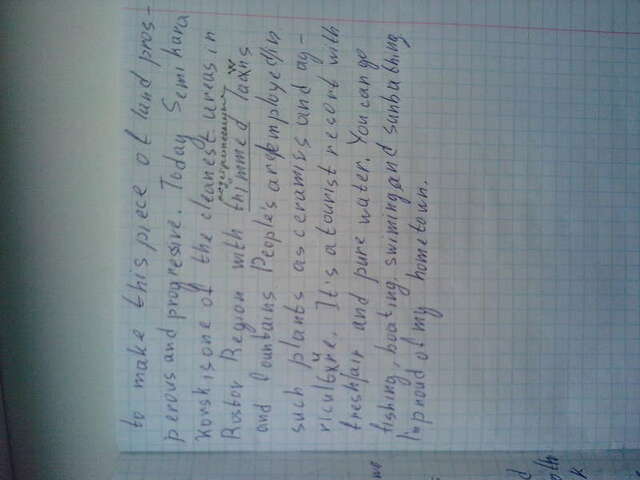 to make this piece of land pros-
perous and progressive. Today Semikara
korsk is one of the cleanest areas in
Rostov Region with thimmed lawns
and fountains People's are employed in
such plants as ceramics and ag-
riculture. It's a tourist resort with
fresh air and pure water. You can go
fishing, boating, swiming and sunbathing
I'm proud of my hometown.